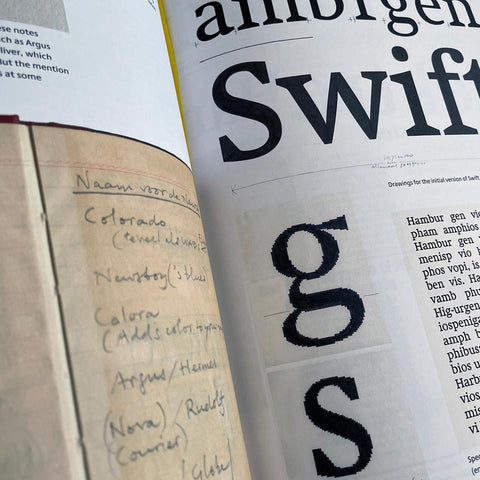 se notes
ch as Argus
liver, which
But the mention
s at some
Naam voor de
Colorado
Newsboy ('s blues
Colora
(Adds color to your
Argus / Hermes
(Nova) / Rudolf
(Courier)
/ Globe
ambrgen
Swift
Drawings for the initial version of Swift,
g
s
Hambur gen vi
pham amphios
Hambur gen
menisp vio
phos vopi, is
ben vis. Ha
vamb phu
Hig-urgen
iospeniga
amph b
phibus
bios u
Harb
vios
mis
vi
Spec
(en